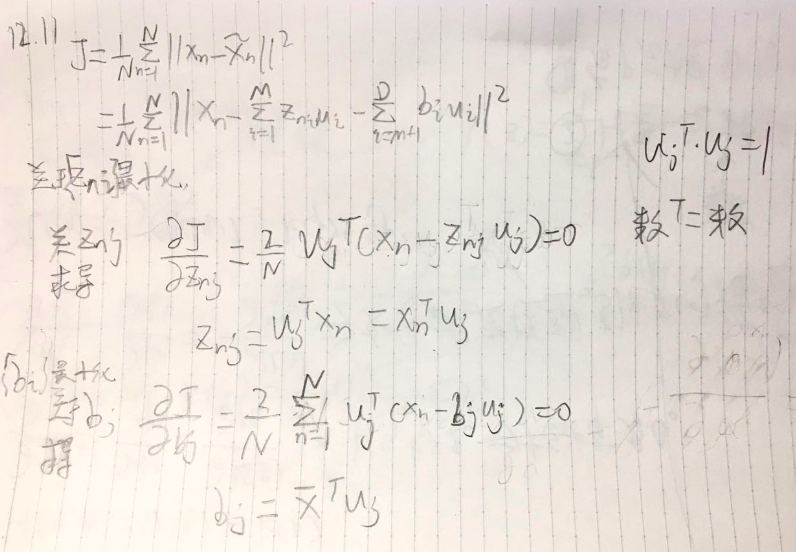 12.11 J = 1/N Σ_{n=1}^{N} ||x_n - x̃_n||²
= 1/N Σ_{n=1}^{N} ||x_n - Σ_{i=1}^{M} z_{ni} u_i - Σ_{i=m+1}^{D} b_i u_i||²
关于z_{ni}最小化
u_j^T·u_j = 1
数^T = 数
关z_{nj}求导 ∂J/∂z_{nj} = 2/N u_j^T (x_n - z_{nj} u_j) = 0
z_{nj} = u_j^T x_n = x_n^T u_j
{b_i}最小化
关于b_j求导 ∂J/∂b_j = 2/N Σ_{n=1}^{N} u_j^T (x_n - b_j u_j) = 0
b_j = x̄^T u_j